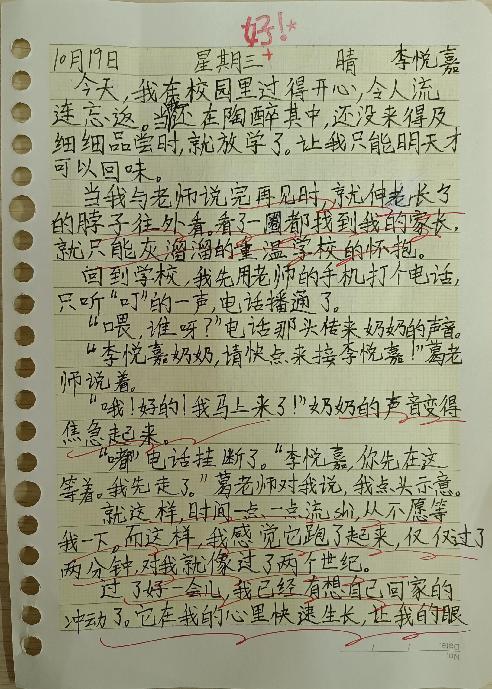 好!
10月19日 星期三 晴 李悦嘉
今天,我在校园里过得开心,令人流
连忘返。当还在陶醉其中,还没来得及
细细品尝时,就放学了。让我只能明天才
可以回味。
当我与老师说完再见时,就伸老长了
的脖子往外看。看了一圈都找到我的家长,
就只能灰溜溜的重温学校的怀抱。
回到学校,我先用老师的手机打个电话,
只听“叮”的一声,电话播通了。
“喂,谁呀?”电话那头传来奶奶的声音。
“李悦嘉奶奶,请快点来接李悦嘉!”葛老
师说着。
“哦!好的!我马上来了!”奶奶的声音变得
焦急起来。
“嘟”电话挂断了。“李悦嘉,你先在这
等着。我先走了。”葛老师对我说,我点头示意。
就这样,时间一点一点流shi,从不愿等
我一下。而这样,我感觉它跑了起来,仅仅过了
两分钟,对我就像过了两个世纪。
过了好一会儿,我已经有想自己回家的
冲动了。它在我的心里快速生长,让我的眼